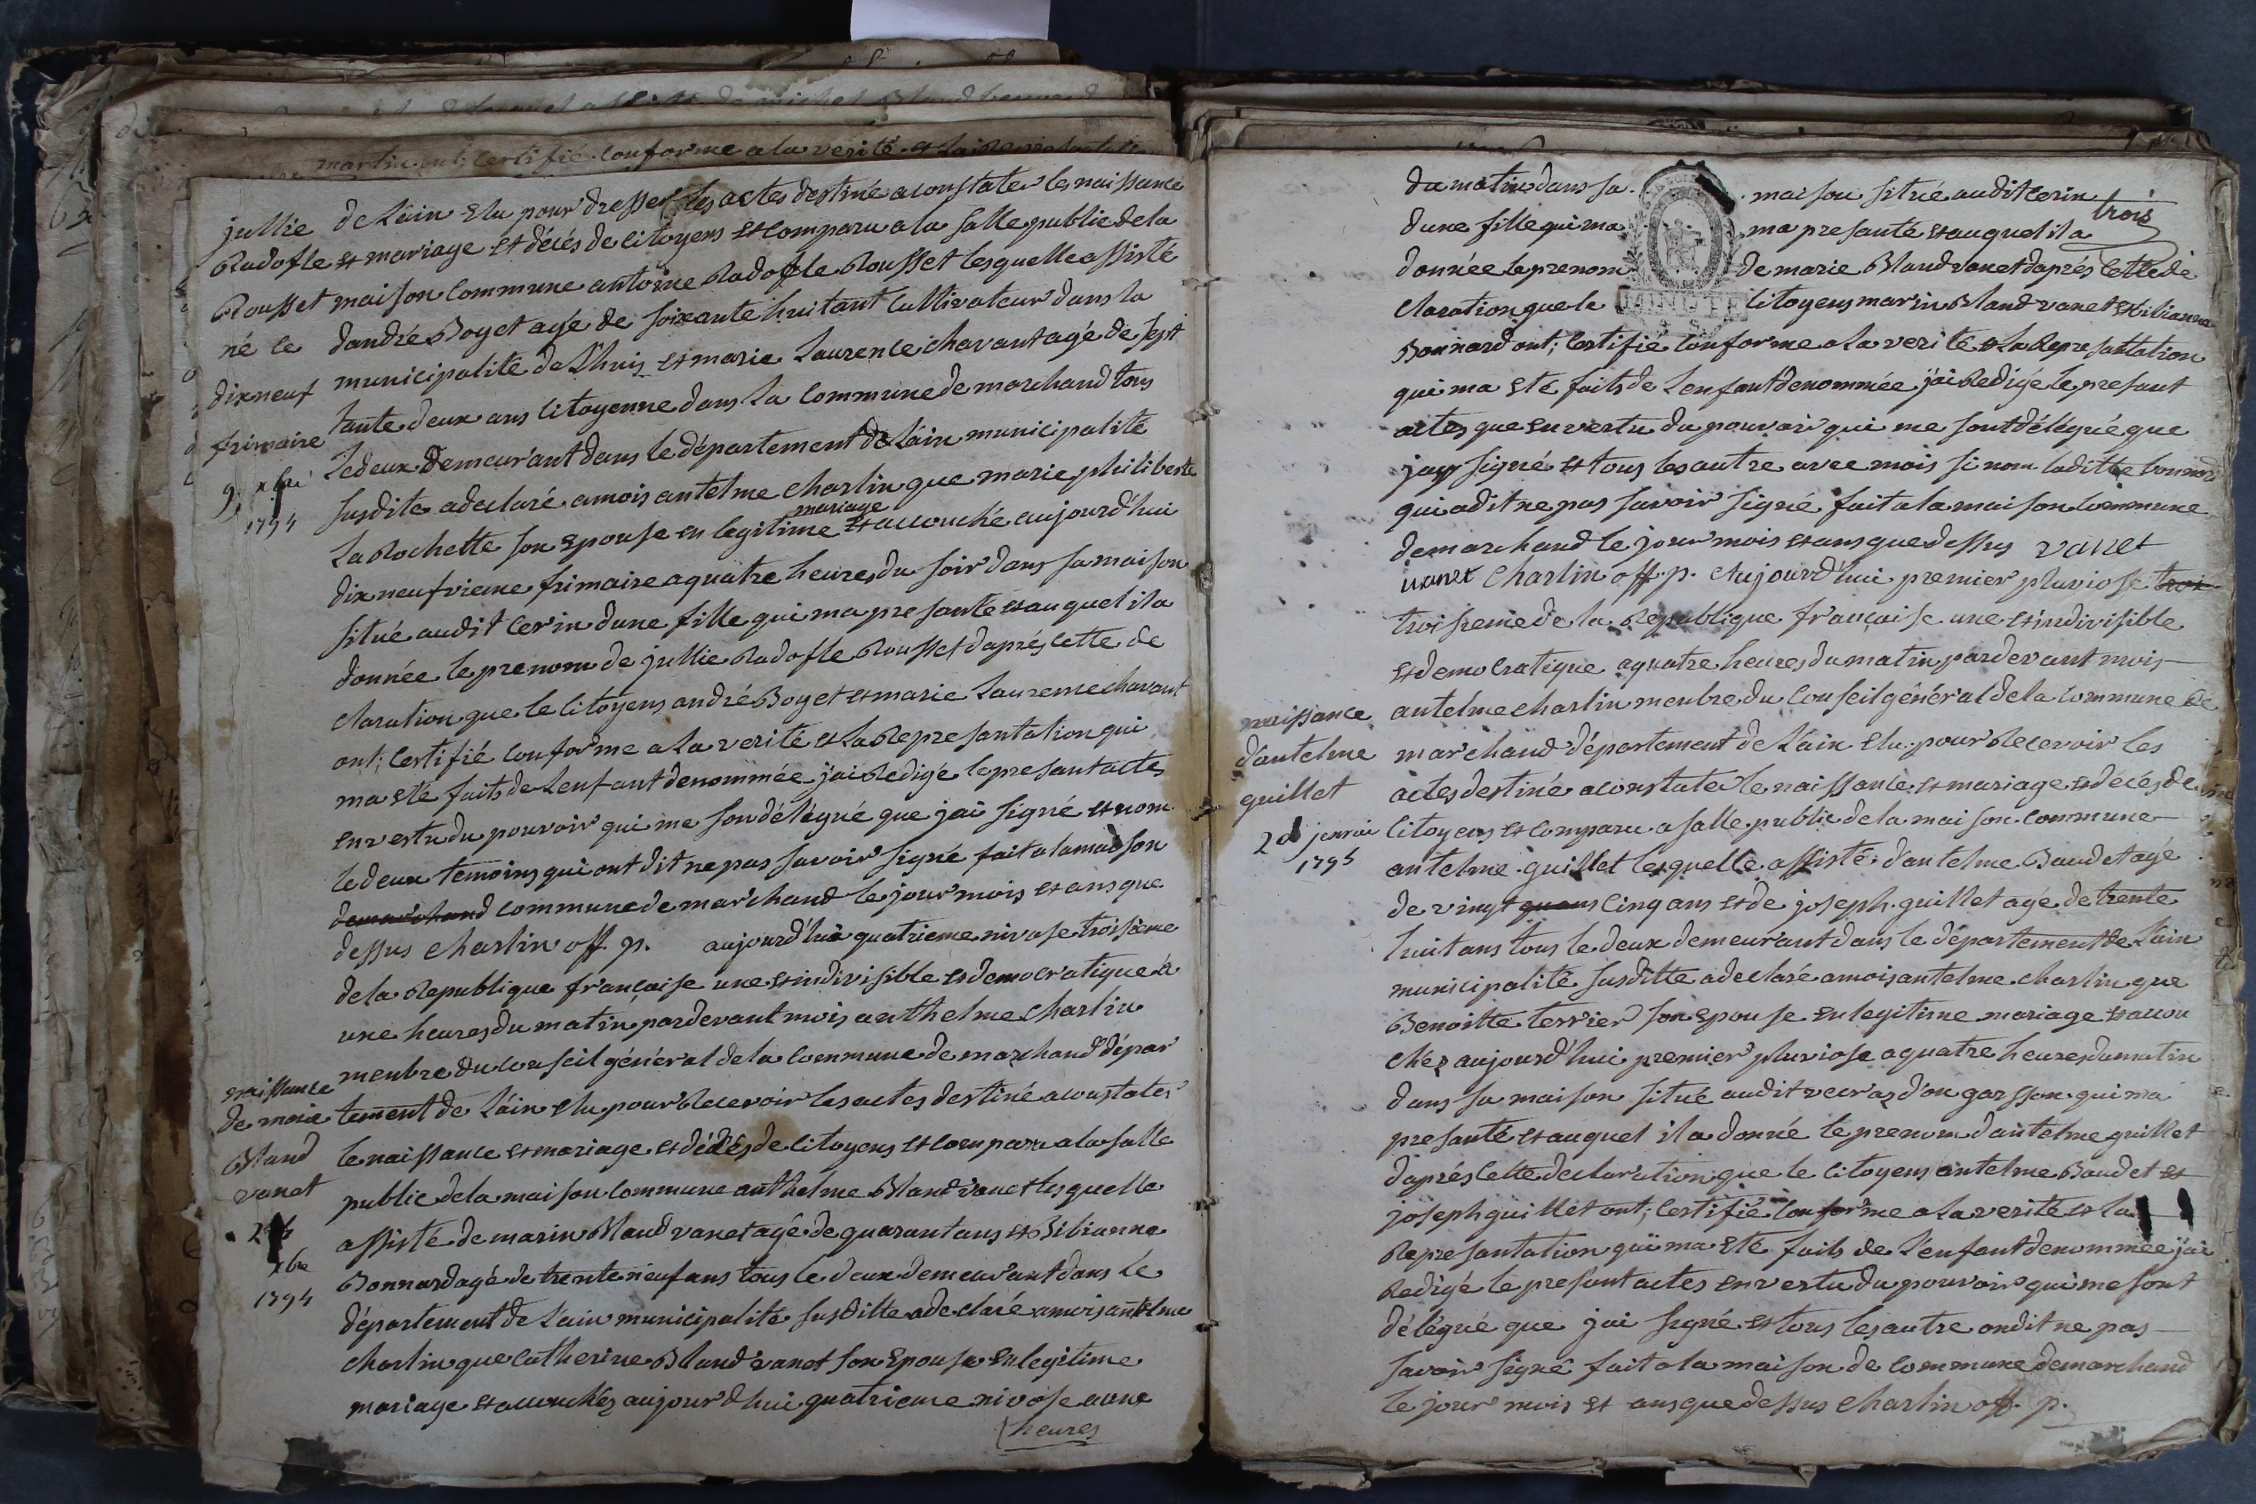 martin ont; certifié conforme a la verité et la Representati
jullie
Radofle
Rousset
né le
dixneuf
frimaire
9, xbre
1794
de Lâin elu pour dresser les actes destiné a constater les naissance
et mariage et décés de citoyens et comparu a la salle public de la
maison commune antoine Radofle Rousset lesquelle assisté
dandré Boyet agé de soixante huitant cultivateur dans la
municipalité de Lhuis et marie Laurence chavant agé de sept
tante deux ans citoyenne dans la commune de marchand tous
ledeux demeurant dans le département de Lain municipalité
susdite a declaré a mois antelme charlin que marie philiberte
mariage
La Rochette son epouse en legitime et accouché aujourd'hui
dixneufvieme frimaire a quatre heures du soir dans sa maison
situé audit cerin dune fille qui ma presanté et auquel il a
donnée le prenom de jullie Radofle Rousset daprés cette de
claration que le citoyens andré Boyet et marie Laurence chavant
ont; certifié conforme a la verité et la Represantation qui
ma eté faits de Lenfant denommée jai Redigé le presant actes
en vertu du pouvoir qui me son délégué que jai signé et nom
le deux temoins qui ont dit ne pas savoir signé fait a la maison
demarchand commune de marchand le jour mois et ans que
dessus charlin off. p. aujourd'hui quatrieme nivose troisième
de la Republique française une et indivisible et democratique a
une heures du matin pardevant mois anthelme charlin
menbre du conseil général de la commune de marchand dépar
naissance
de marie
Bland
vanet
xbre
1794
tement de Lain elu pour Recevoir les actes destiné a constater
le naissance et mariage et décés de citoyens et comparu a la salle
public de la maison commune anthelme Bland vanet lesquelle
assisté de marin Bland vanet agé de quarant ans et Bibianne
Bonnard agé de trente neuf ans tous le deux demeurant dans le
département de Lain municipalité susditte a declaré a mois antelme
charlin que catherine Bland vanet son epouse en legitime
mariage et accouchéz aujourd'hui quatrieme nivose a une
heures
du matin dans sa maison situé audit cerin
trois
dune fille qui ma ma presanté et auquel il a
donnée le prenom de marie Bland vanet daprés cette de
claration que le citoyens marin Bland vanet et bibianne
MINUTE
Bonnard ont; certifié conforme a la verité et la Represantation
qui ma eté faits de Lenfant denommée jai Redigé le presant
actes que en vertu du pouvoir qui me sont délégué que
jay signé et tous les autre avec mois si nom laditte bonnard
qui a dit ne pas savoir signé fait a la maison commune
de marchand le jour mois et ans que dessus vanet
vanet charlin off. p. Aujourd'hui premier pluviose troi
troisieme de la Republique française une et indivisible
et democratique a quatre heures du matin pardevant mois
naissance
d'antelme
guillet
janvier
1795
antelme charlin menbre du conseil général de la commune de
marchand département de Lain elu pour Recevoir les
actes destiné a constater le naissance et mariage et décés de
citoyens et comparu a salle public de la maison commune
antelme guillet lesquelle assisté d'antelme Baudet agé
de vingt cinq ans et de joseph guillet agé de trente
huit ans tous le deux demeurant dans le département de Lain
municipalité susditte a declaré a mois antelme charlin que
Benoitte terrier son epouse en legitime mariage et accou
chéz aujourd'hui premier pluviose a quatre heures du matin
dans sa maison situé audit d'on garsson qui ma
presanté et auquel il a donné le prenom dantelme guillet
daprés cette declaration que le citoyens antelme Baudet et
joseph guillet ont; certifié conforme a la verité et la
Represantation qui ma eté faits de L'enfant denommée jai
Redigé le presant actes en vertu du pouvoir qui me sont
délégué que jai signé et tous les autre ondit ne pas
savoir signé fait a la maison de commune de marchand
le jour mois et ans que dessus charlin off. p.